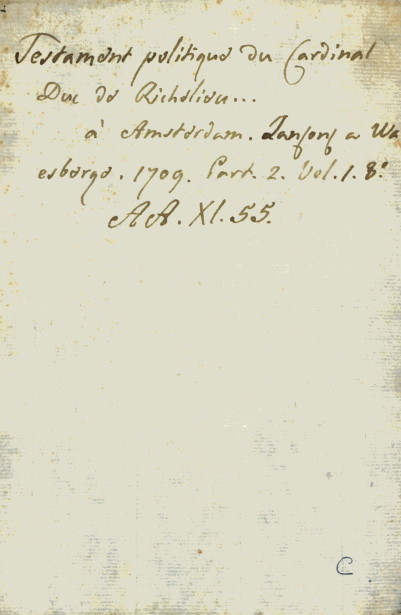 Testament politique du Cardinal
Duc de Richelieu...
à Amsterdam. Iansons a Wa
esberge. 1709. Part. 2. Vol. 1. 8.º
AA. XI. 55.
C